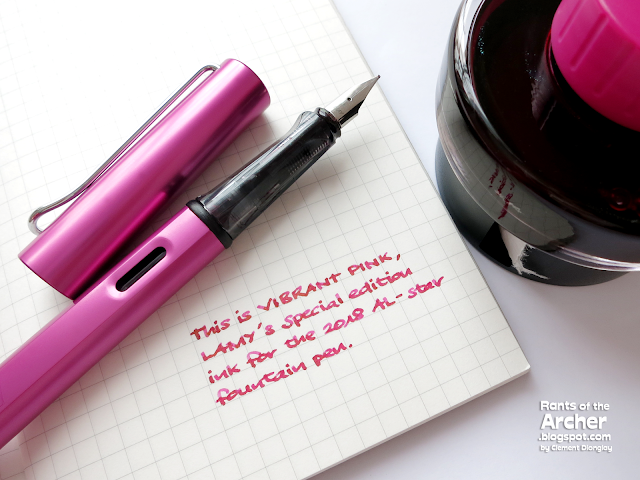 This is VIBRANT PINK,
LAMY's special edition
ink for the 2018 AL-star
fountain pen.
Rants of the
Archer
.blogspot.com
by Clement Dionglay